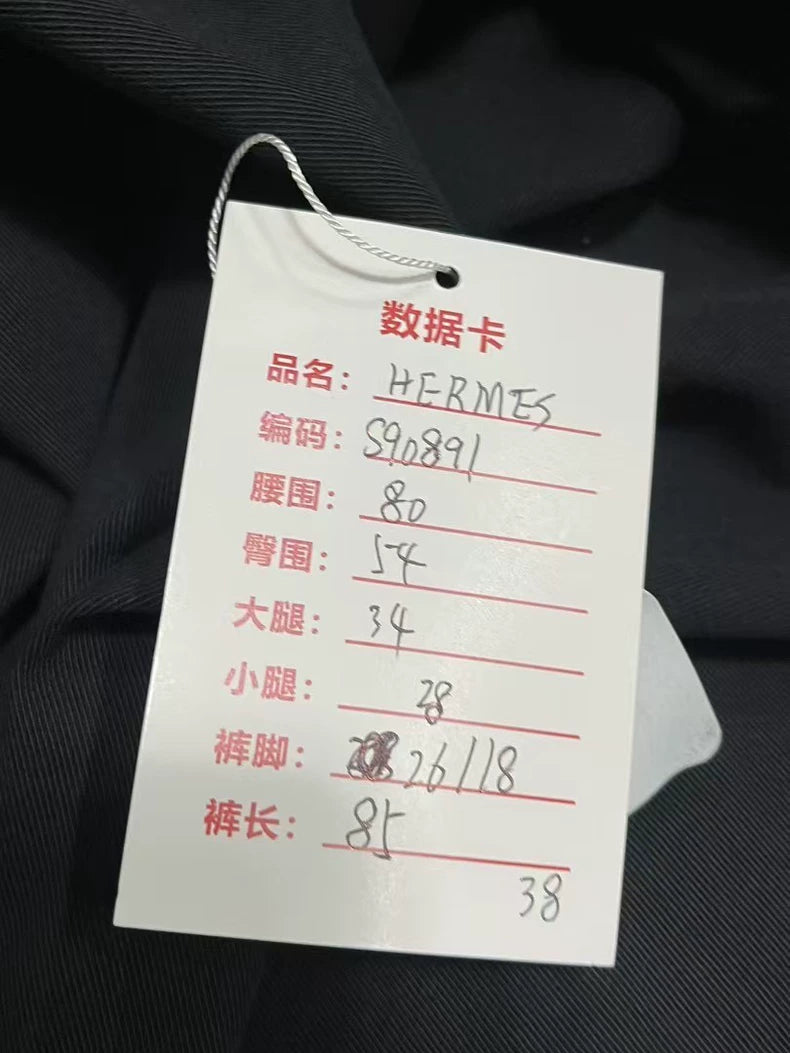 数据卡
品名：HERMES
编码：S90891
腰围：80
臀围：54
大腿：34
小腿：28
裤脚：26/18
裤长：85
38